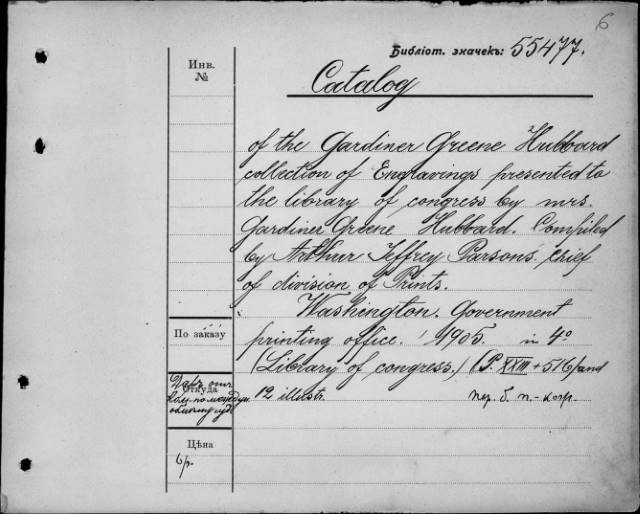 6
Библіот. значекъ: 55477.
Инв.
№
Catalog
of the Gardiner Greene Hubbard
collection of Engravings presented to
the library of congress by mrs.
Gardiner Greene Hubbard. Compiled
by Arthur Jeffrey Parsons. chief
of division of Prints.
Washington. Government
По заказу
printing office. 1905. in 4°
(Library of congress.) (P. XXIII + 516) and
Откуда
12 illustr.
пер. б. п. - кор.
Цѣна
6 р.